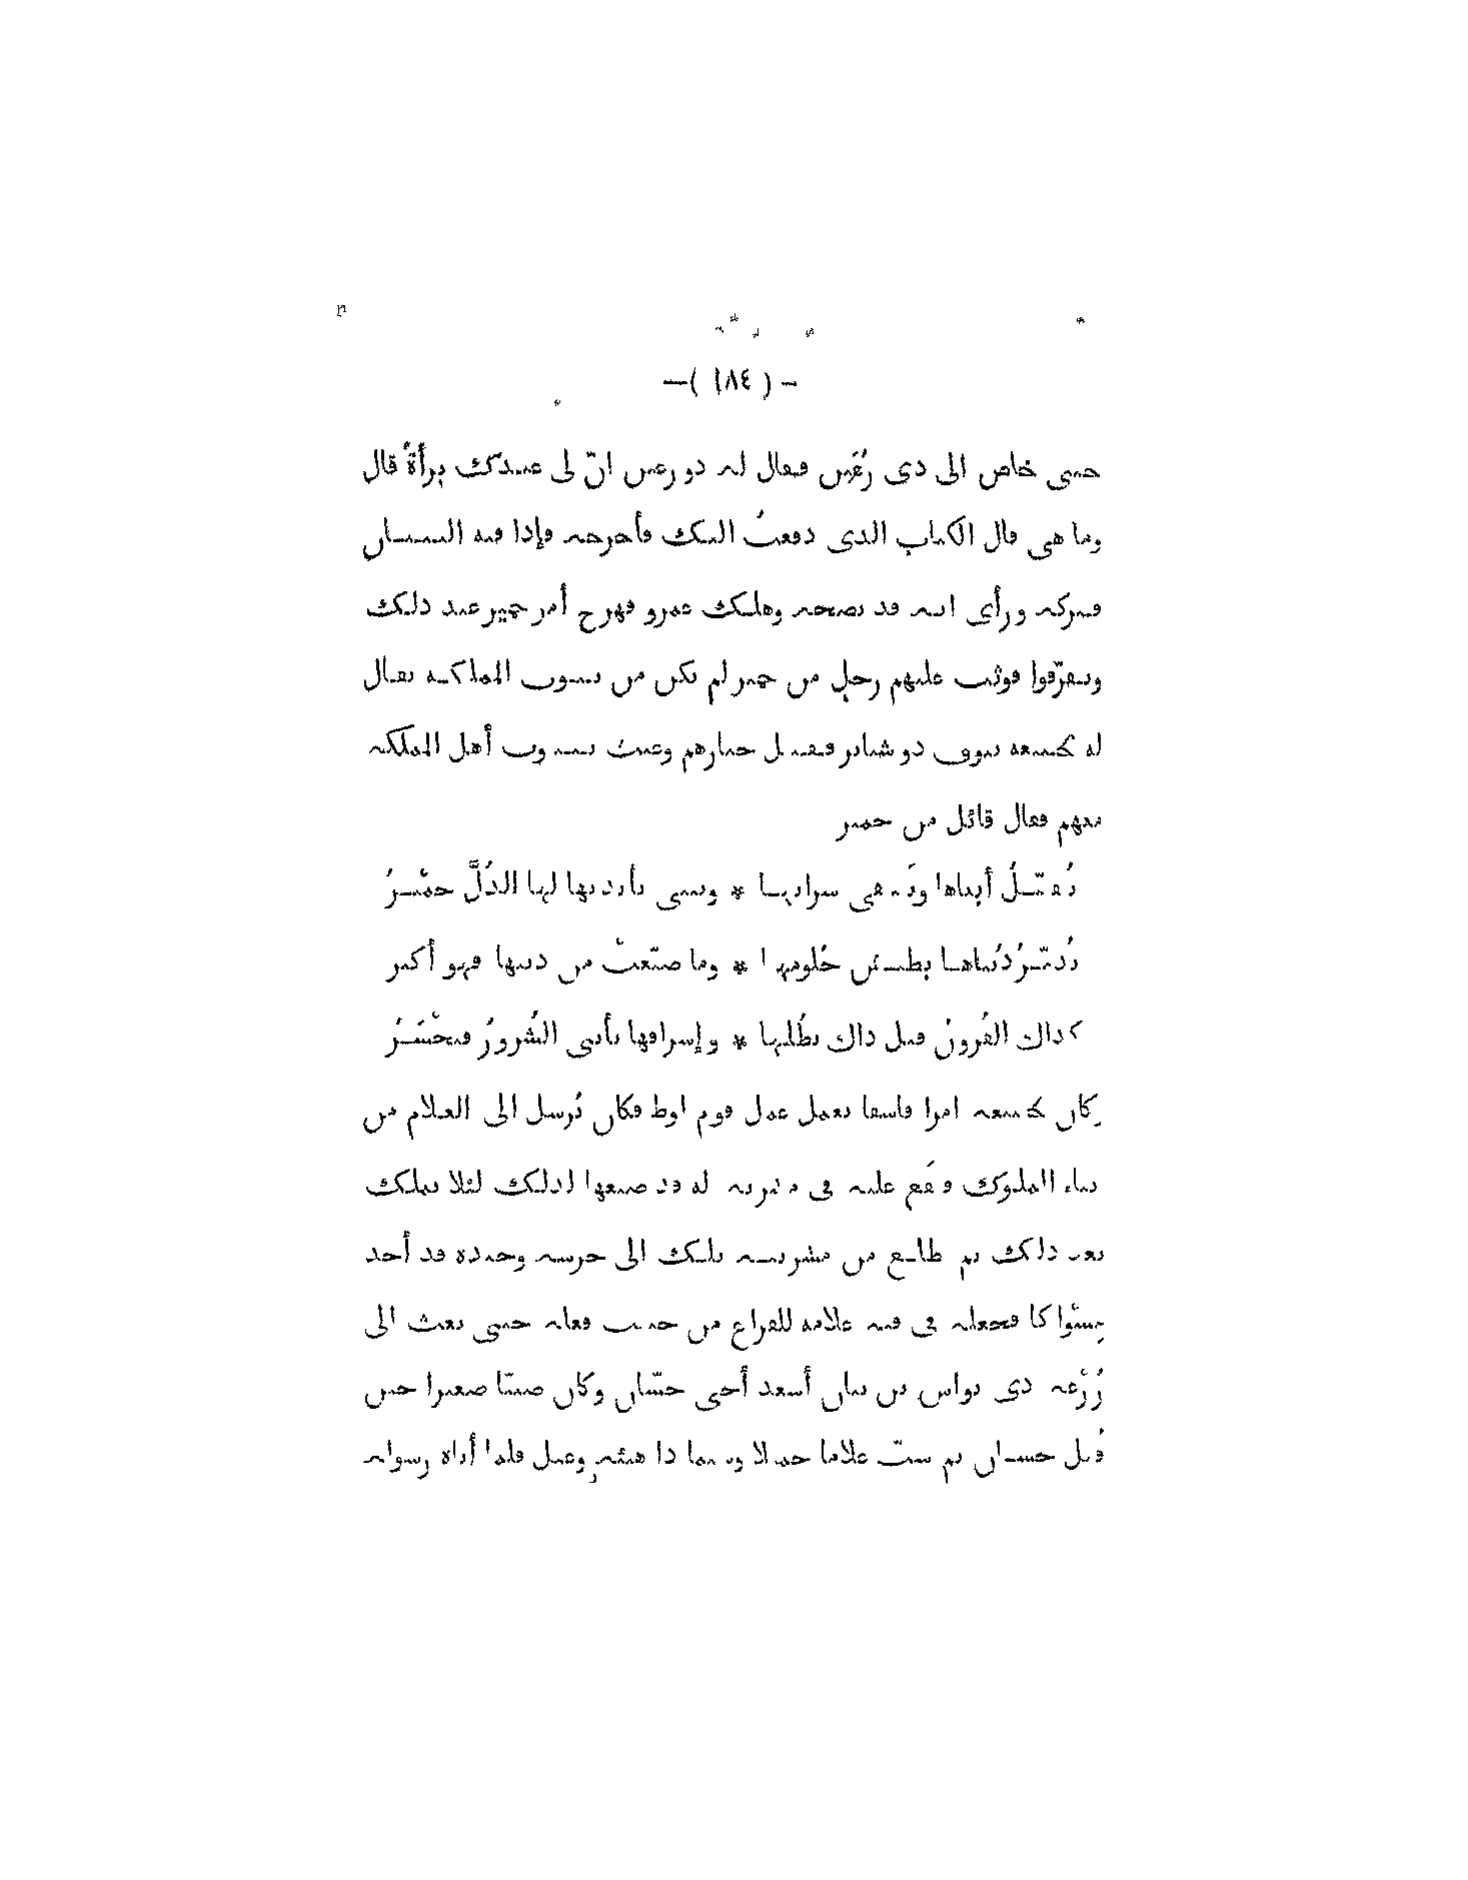 —( ١٨٤ )—
حتى خلص الى ذى رُعَين فقال له ذو رعين انّ لى عندك برأةً قال
وما هى قال الكتاب الذى دفعتُ اليك فأخرجه فإذا فيه البيتان
فتركه ورأى انه قد نصحه وهلك عمرو فهرج أمر حمير عند ذلك
وتفرّقوا فوثب عليهم رجل من حمير لم يكن من بيوت المملكة يقال
له لخنيعة ينوف ذو شناتر فقتل خيارهم وعبث ببيوت أهل المملكة
منهم فقال قائل من حمير
تُقتّلُ أبناها وتَنفى سراتها * وتبنى بأيديها لها الذُلَّ حمْيرُ
تُدمّرُ دُنياها بطيش حُلومها * وما ضيّعتْ من دينها فهو أكثر
كذاك القُرونُ قبل ذاك بظُلمها * وإسرافها تأتى الشُرورُ فتخْسَرُ
وكان لخنيعة امرا فاسقا يعمل عمل قوم لوط فكان يُرسل الى الغلام من
بناء الملوك فيقَع عليه فى مشربة له قد صنعها لذلك لئلا يملك
بعد ذلك ثم طلع من مشربته تلك الى حرسه وجنده قد أخذ
مِسْواكا فجعله فى فيه علامة للفراغ من خبيث فعله حتى بعث الى
زُرْعة ذى نواس بن تبان أسعد أخى حسّان وكان صبيّا صغيرا حين
قُتل حسان ثم شبّ غلاما جميلا وسيما ذا هيئة وعقل فلما أتاه رسوله